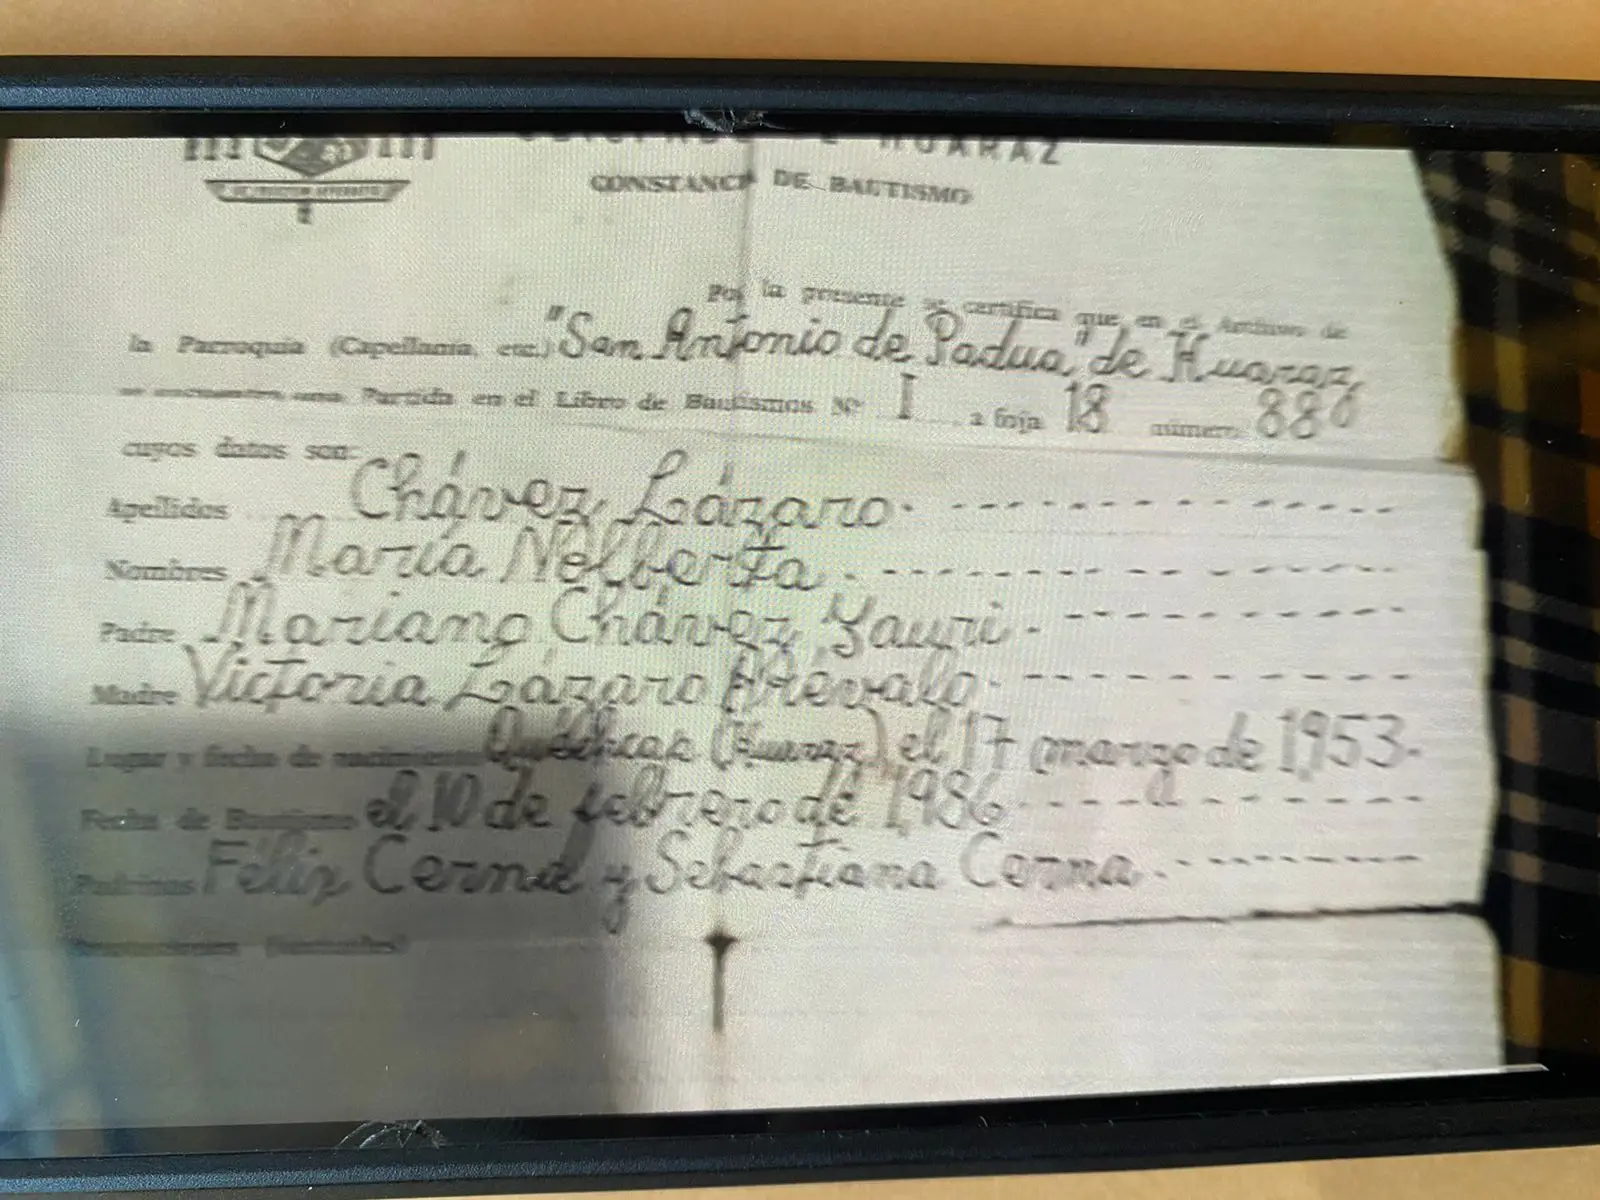 DE HUARAZ
CONSTANCIA DE BAUTISMO
Por la presente se certifica que en el Archivo de
la Parroquia (Capellanía, etc.) "San Antonio de Padua" de Huaraz,
se encuentra una Partida en el Libro de Bautismos Nº I a foja 18 número 886
cuyos datos son:
Apellidos Chávez Lázaro.
Nombres María Nolberta.
Padre Mariano Chávez Yauri.
Madre Victoria Lázaro Arévalo.
Lugar y fecha de nacimiento (Huaraz) el 17 marzo de 1,953.
Fecha de Bautismo el 10 de febrero de 1,986
Padrinos Félix Cerna y Sebastiana Cerna.